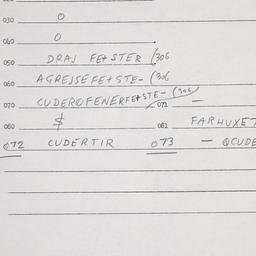 030 0
040 0
050 DRAJ FE+STER (306
060 AGREJSEFE+STE- (306
070 CUDEROFENERFE+STE- (306)
071 —
080 $ 081 FARHUXET
072 CUDERTIR 073 — QCUDE